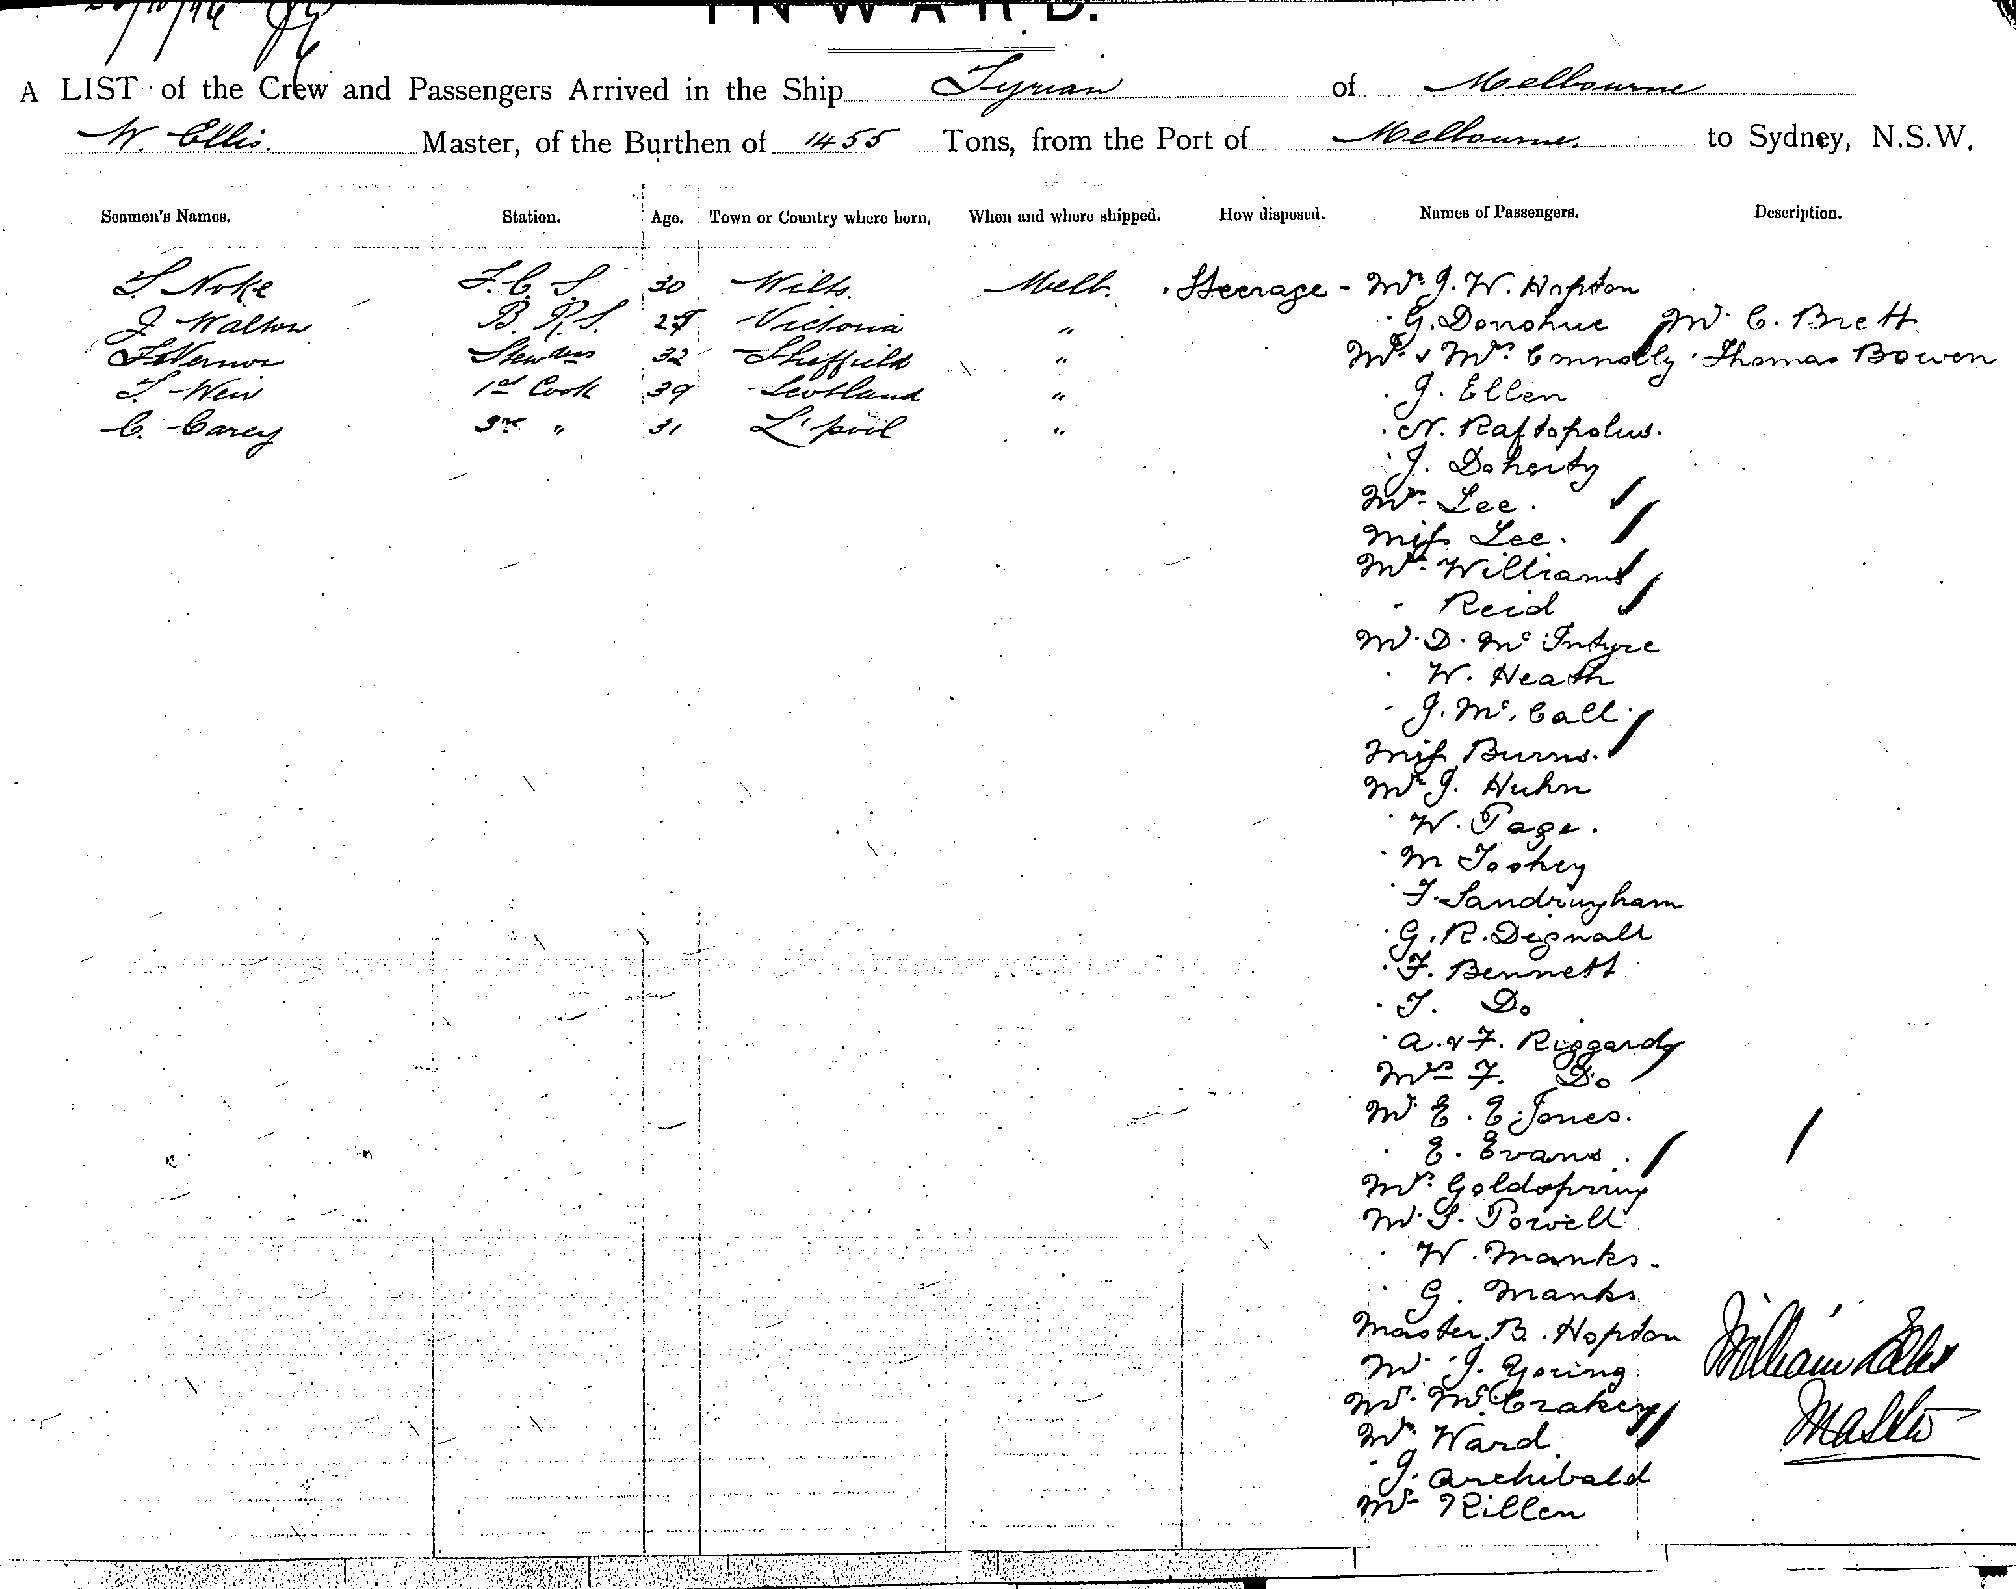 INWARD.
A LIST of the Crew and Passengers Arrived in the Ship Tyrian of Melbourne
W. Ellis. Master, of the Burthen of 1455 Tons, from the Port of Melbourne. to Sydney, N.S.W.
Seamen's Names. Station. Age. Town or Country where born. When and where shipped. How disposed. Names of Passengers. Description.
S. Noke F.C.S. 30 Wilts. Melb. Steerage - Mr. J. W. Hopton
J Walton B.R.S. Victoria " G. Donohue Mr C. Brett
F Vernon 32 Sheffield " Mr & Mrs Connolly Thomas Bowen
Weir 1st Cook 39 Scotland " J. Ellen
C. Carey 3rd " 31 L'pool " N. Raftopolus.
J. Doherty
Mrs Lee.
Miss Lee.
Mrs Williams
" Reid
Mr D. McIntyre
W. Heath
J. McCall
Miss Burns.
Mr J. Huhn
W. Page.
M Toohey
F. Sandringham
G. R. Dignall
F. Bennett
T. Do
A. & F. Riggardy
Mrs F. Do
Mr E. E. Jones.
E. Evans.
Mrs Goldspring
Mr S. Powell
W. Manks.
G. Manks
Master B. Hopton
Mr J. Goring
Mrs McCrakey
Mrs Ward
J. Archibald
Mr Killen
William Ellis
Master